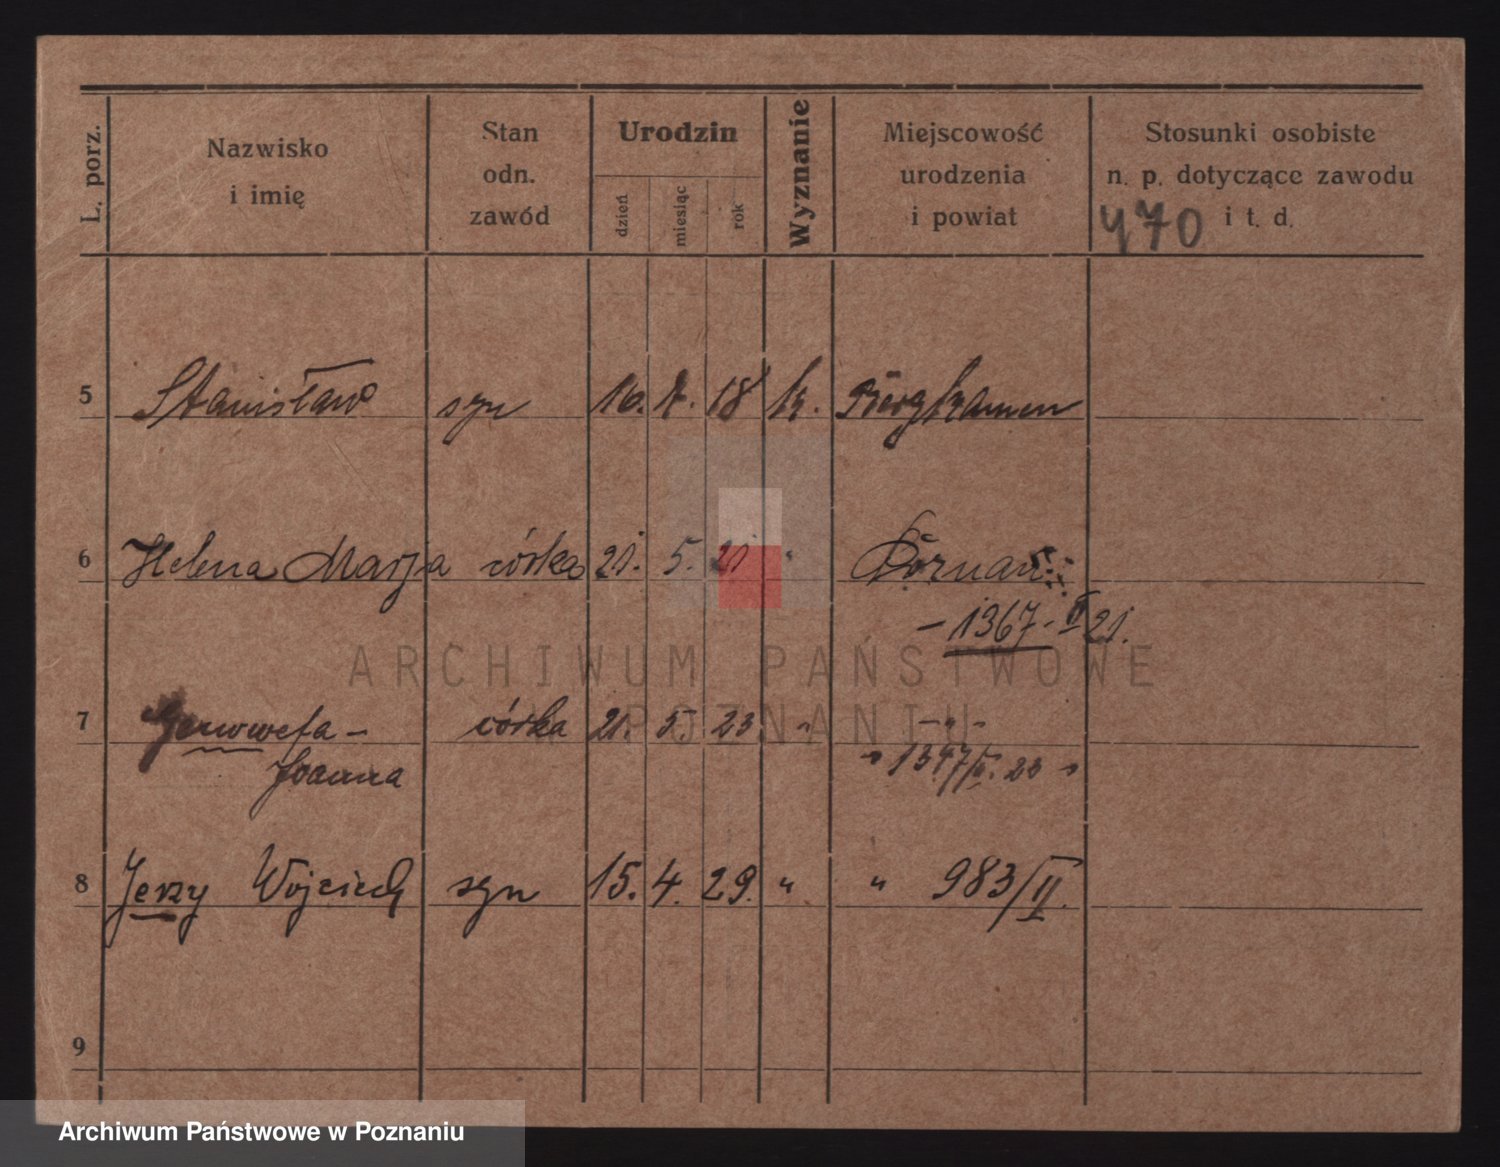 L. porz.
Nazwisko
i imię
Stan
odn.
zawód
Urodzin
dzień
miesiąc
rok
Wyznanie
Miejscowość
urodzenia
i powiat
Stosunki osobiste
n. p. dotyczące zawodu
i t. d.
470
5 Stanisław syn 16. 18 k. Bergkamen
6 Helena Marja córka 21. 5. 21 " Poznań
- 1367 - II 21.
7 Genowefa - córka 21. 5. 23. " - " -
Joanna " 1347/II. 23 "
8 Jerzy Wojciech syn 15. 4. 29. " " 983/II.
9
ARCHIWUM PAŃSTWOWE
W POZNANIU
Archiwum Państwowe w Poznaniu